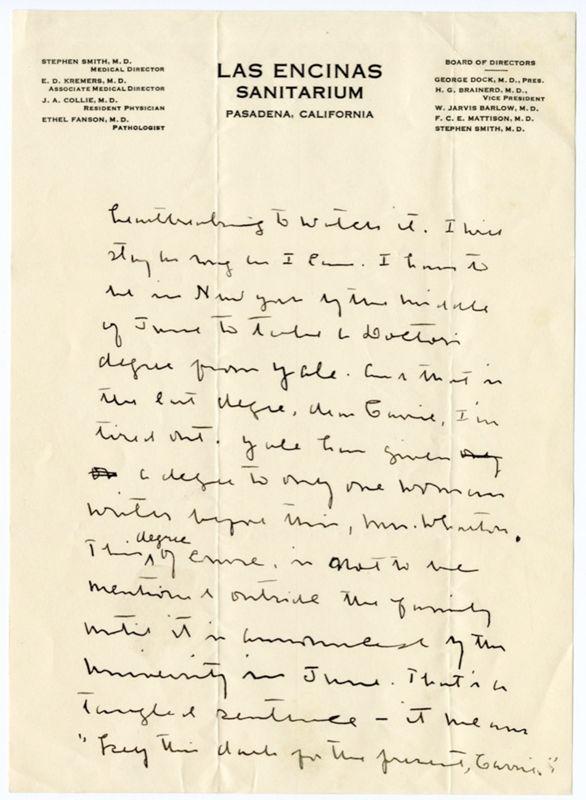 STEPHEN SMITH, M. D.
MEDICAL DIRECTOR
E. D. KREMERS, M. D.
ASSOCIATE MEDICAL DIRECTOR
J. A. COLLIE, M. D.
RESIDENT PHYSICIAN
ETHEL FANSON, M. D.
PATHOLOGIST
LAS ENCINAS
SANITARIUM
PASADENA, CALIFORNIA
BOARD OF DIRECTORS
GEORGE DOCK, M. D., PRES.
H. G. BRAINERD, M. D.,
VICE PRESIDENT
W. JARVIS BARLOW, M. D.
F. C. E. MATTISON, M. D.
STEPHEN SMITH, M. D.
heartbreaking to watch it. I will
stay as long as I can. I have to
be in New York by the middle
of June to take a Doctor's
degree from Yale. And that is
the last degree, dear Carrie, I'm
tired out. Yale has given only
a degree to only one woman
writer before this, Mrs. Wharton.
This degree, of course, is not to be
mentioned outside the family
until it is announced by the
University in June. That's a
tangled sentence – it means
"Keep this dark for the present, Carrie."